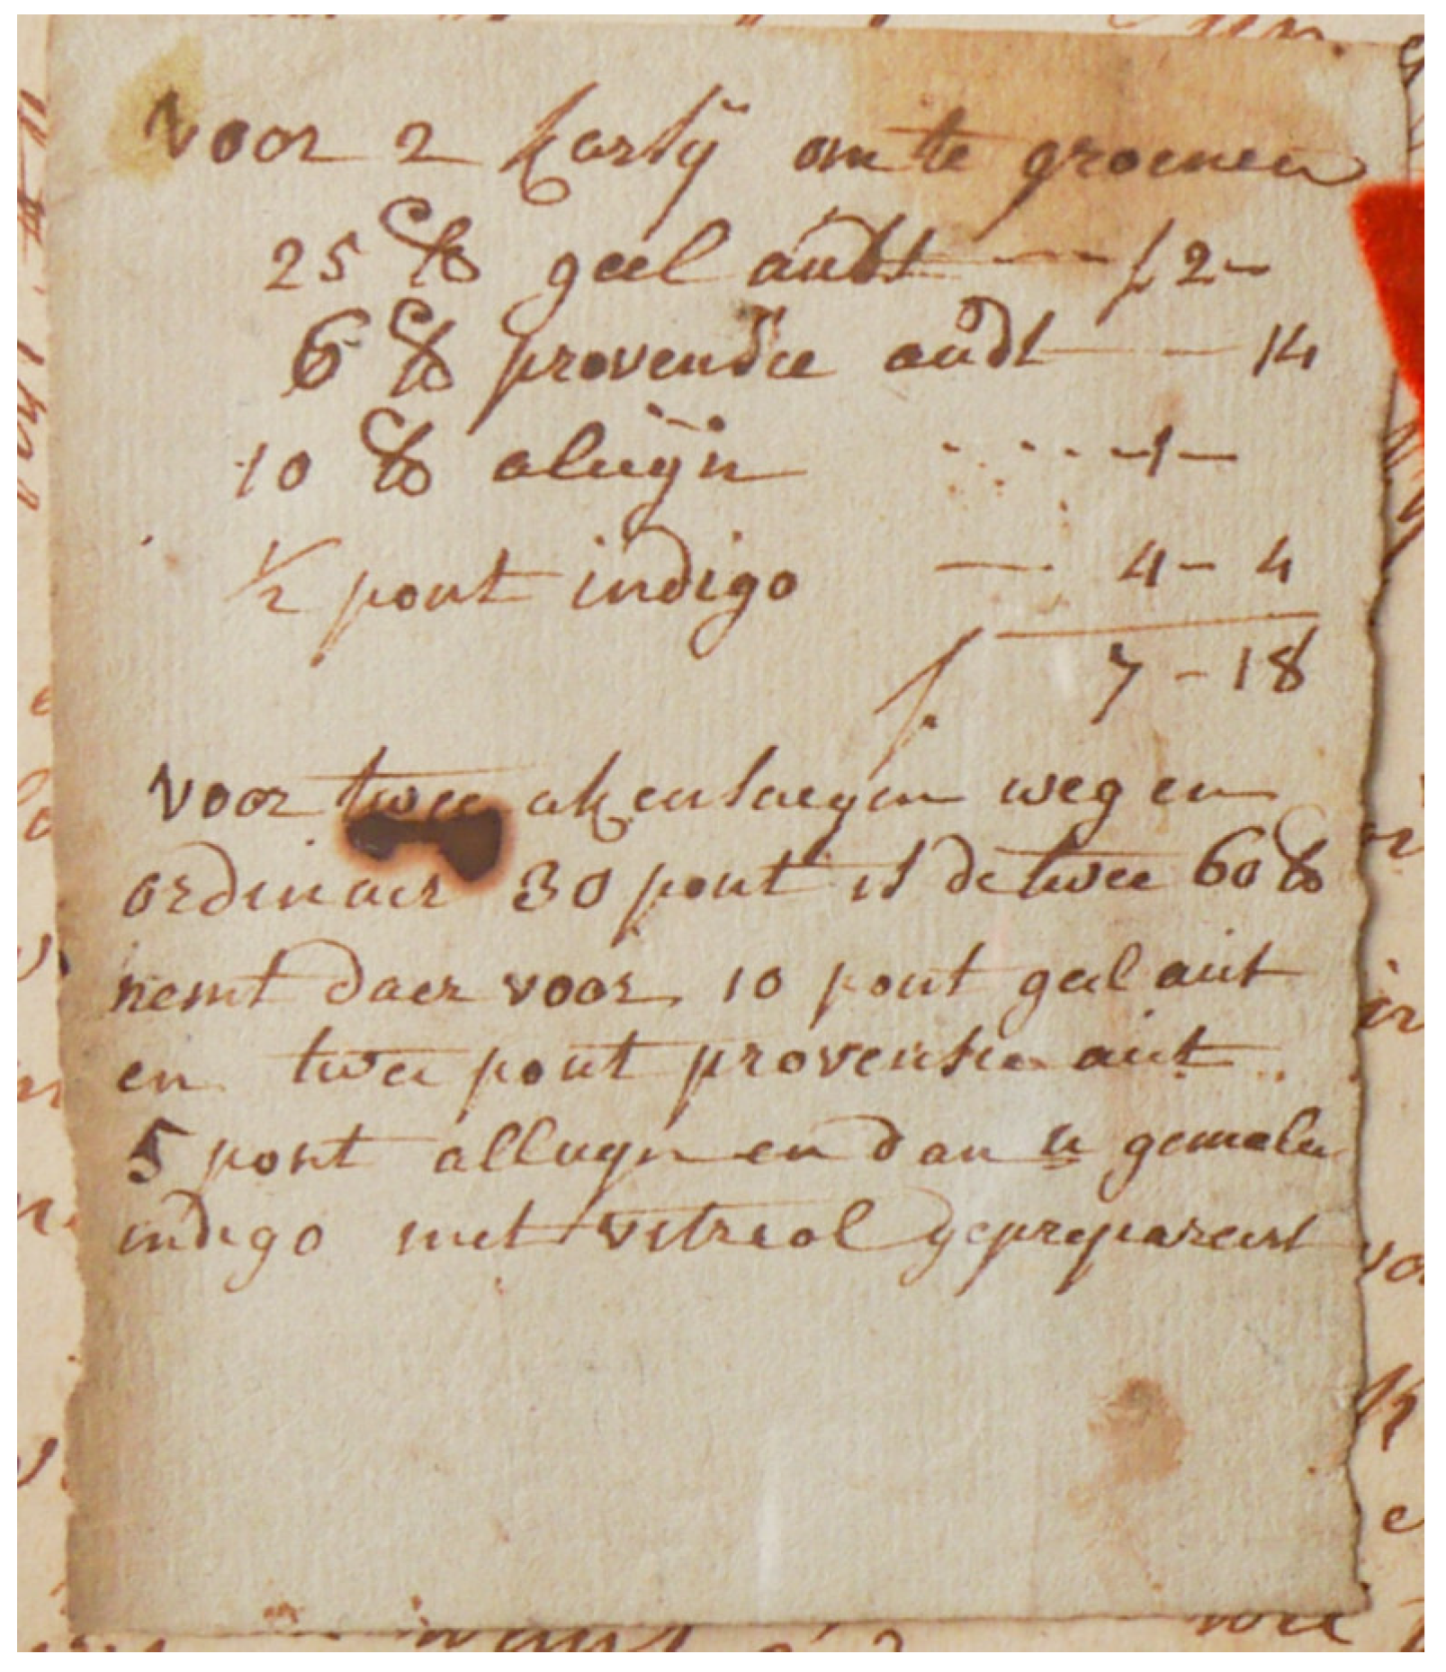 voor 2 karsij om te groenen
25 ℔ geel audt f 2 -
6 ℔ provendie audt - 14
10 ℔ aluijn - 1 -
½ pont indigo - 4 - 4
f. 7 - 18
voor twee wegen
ordinaer 30 pont is de twee 60 ℔
nemt daer voor 10 pont geel aut
en twee pont provensie aut
5 pont alluyn en dan u gemalen
indigo met vitreol geprepareert